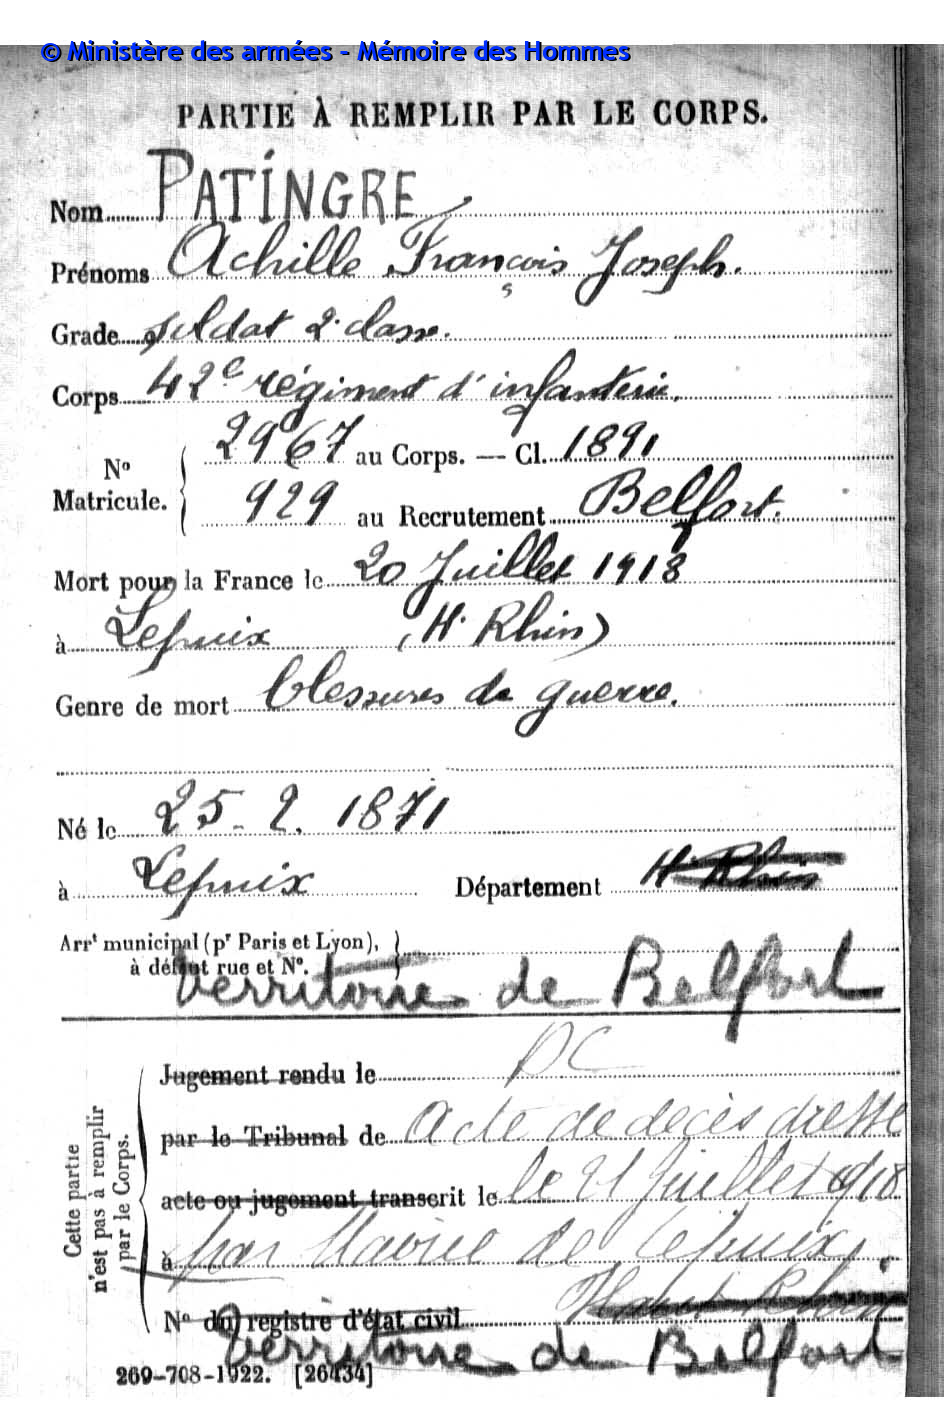 © Ministère des armées - Mémoire des Hommes
PARTIE À REMPLIR PAR LE CORPS.
Nom PATINGRE
Prénoms Achille François Joseph.
Grade soldat 2e classe.
Corps 42e régiment d'infanterie.
N° Matricule. 2967 au Corps. — Cl. 1891
929 au Recrutement Belfort.
Mort pour la France le 20 Juillet 1918
à Lepuix (H. Rhin)
Genre de mort blessures de guerre.
Né le 25. 2. 1871
à Lepuix Département H. Rhin
Arrt municipal (pr Paris et Lyon),
à défaut rue et N°.
territoire de Belfort
Cette partie n'est pas à remplir par le Corps.
Jugement rendu le DC
par le Tribunal de Acte de decès dressé
acte ou jugement transcrit le le 21 Juillet 1918
à par Mairie de Lepuix
N° du registre d'état civil Haut Rhin
territoire de Belfort
269-708-1922. [26434]